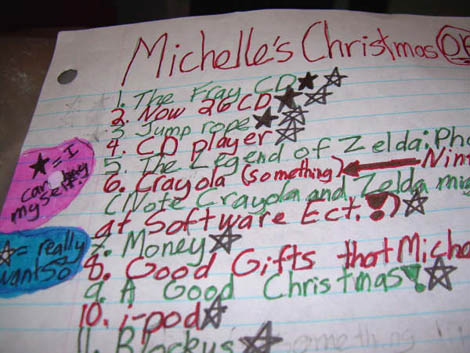 Michelle's Christmas
1. The Fray CD
2. Now 26 CD
3. Jump rope
4. CD player
5. The Legend of Zelda: Pho
6. Crayola (something) Nin
(Note Crayola and Zelda mig
at Software Ect. !)
7. Money
8. Good Gifts that Miche
9. A Good Christmas!
10. i-pod
11. Blockus
something
= I
can buy
myself!
= really
want so